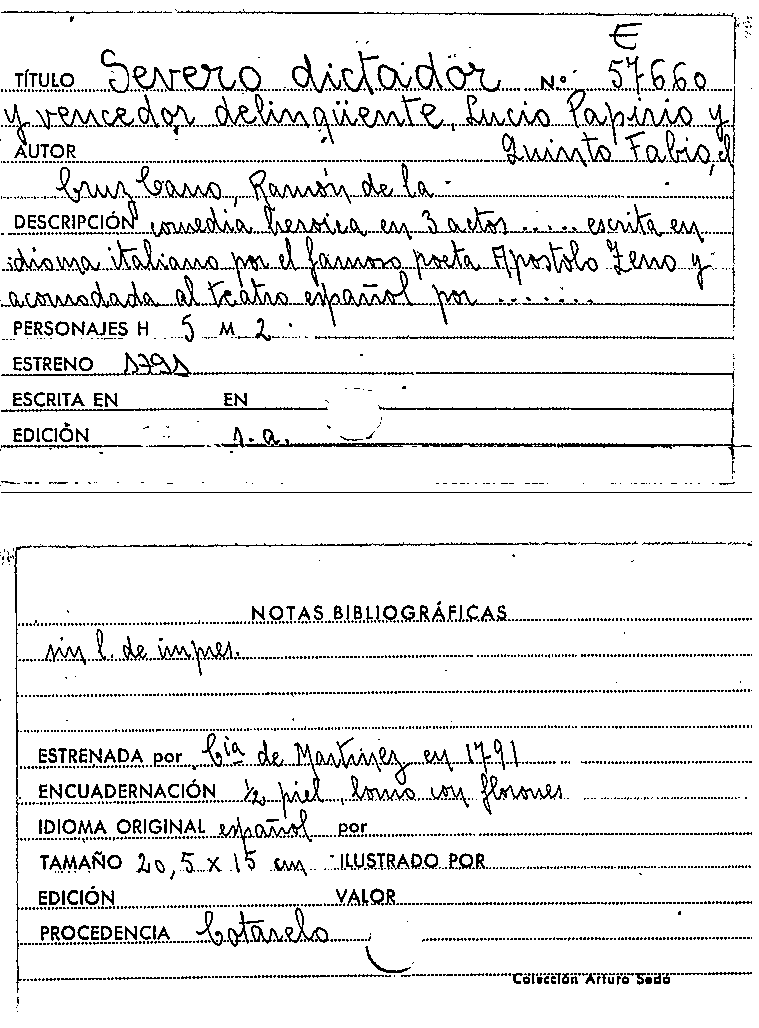 E
TÍTULO Severo dictador N.º 57660
y vencedor delinqüente, Lucio Papirio y
AUTOR Quinto Fabio, el
Cruz Cano, Ramón de la
DESCRIPCIÓN comedia heroica en 3 actos ..... escrita en
idioma italiano por el famoso poeta Apostolo Zeno y
acomodada al teatro español por .......
PERSONAJES H 5 M. 2
ESTRENO 1791
ESCRITA EN EN
EDICIÓN s.a.
NOTAS BIBLIOGRÁFICAS
sin l. de impres.
ESTRENADA por Cía de Martínez en 1791
ENCUADERNACIÓN ½ piel, lomo con florones
IDIOMA ORIGINAL español por
TAMAÑO 20,5 x 15 cm ILUSTRADO POR
EDICIÓN VALOR
PROCEDENCIA Cotarelo
Colección Arturo Sedó